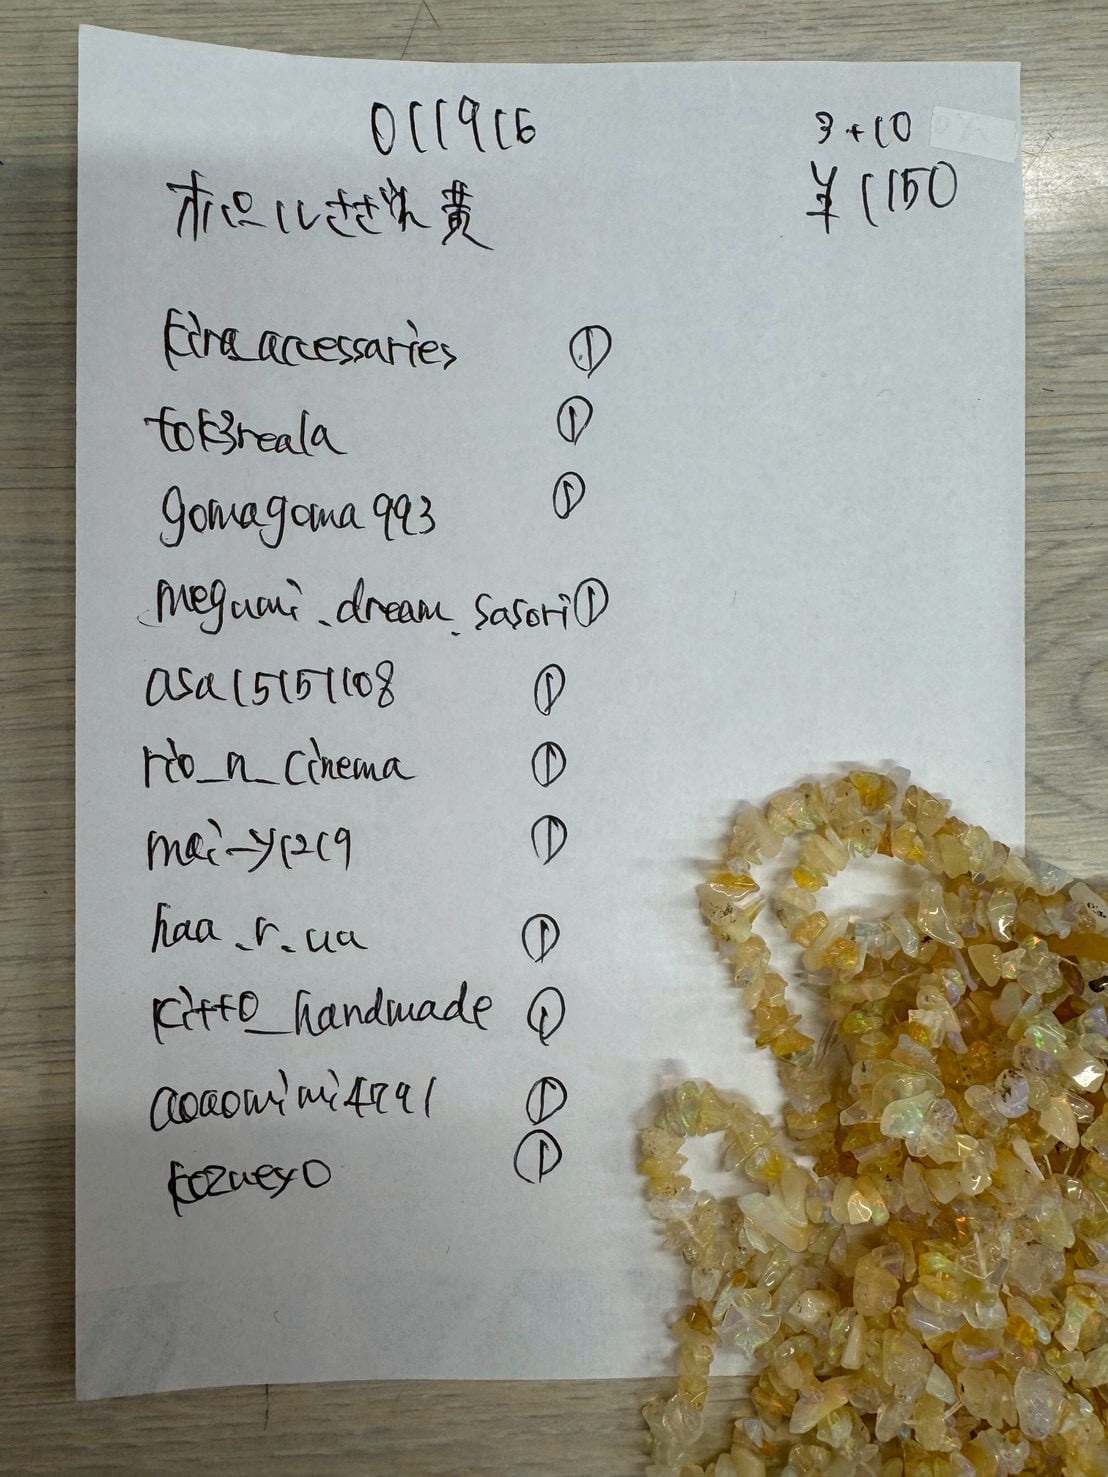 011916
3+10
¥1150
オパールさざれ黄
kira_accessaries ①
tok3reala ①
gomagoma993 ①
megumi.dream.sasori ①
asa15151108 ①
rio_n_cinema ①
mai-y1219 ①
haa.r.ua ①
kitto_handmade ①
aoaomimi4791 ①
kozueyo ①